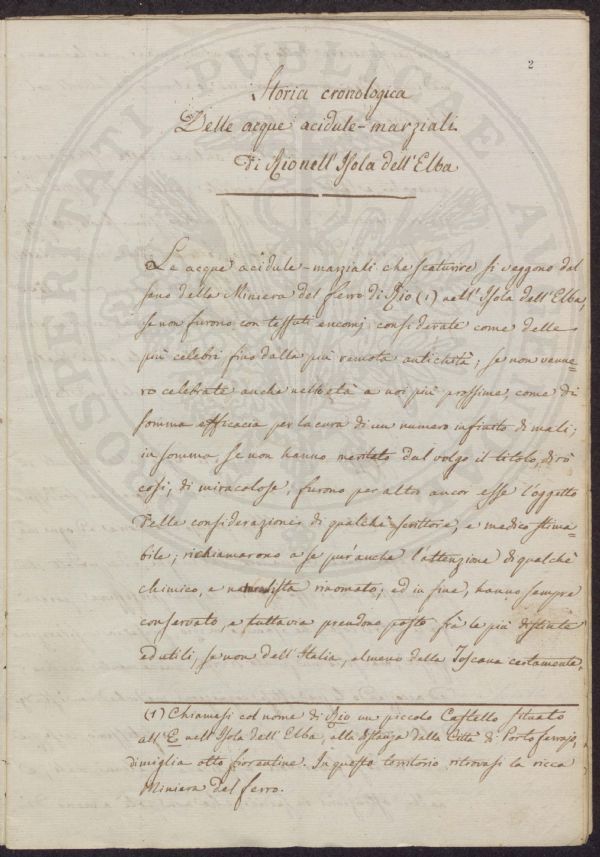 2
Storia cronologica
Delle acque acidule-marziali
Di Rio nell'Isola dell'Elba
Le acque acidule-marziali che scaturire si veggono dal
seno della Miniera del ferro di Rio (1) nell'Isola dell'Elba,
se non furono con tessuti encomj considerate come delle
più celebri fino dalla più remota antichità; se non venne=
ro celebrate anche nell'età a noi più prossime, come di
somma efficacia per la cura di un numero infinito di mali;
in somma, se non hanno meritato dal volgo il titolo, dirò
così, di miracolose, furono per altro ancor esse l'oggetto
Delle considerazioni di qualche scrittore, e medico stima=
bile; richiamarono a se pur'anche l'attenzione di qualche
chimico, e naturalista rinomato; ed in fine, hanno sempre
conservato, e tuttavia prendono posto frà le più distinte
ed utili, se non dell'Italia, almeno della Toscana certamente.
(1) Chiamasi col nome di Rio un piccolo Castello situato
all'E nell'Isola dell'Elba, alla distanza dalla Città di Portoferrajo,
di miglia otto fiorentine. In questo territorio ritrovasi la ricca
Miniera del ferro.
PROSPERITATI PUBLICAE AUGENDAE